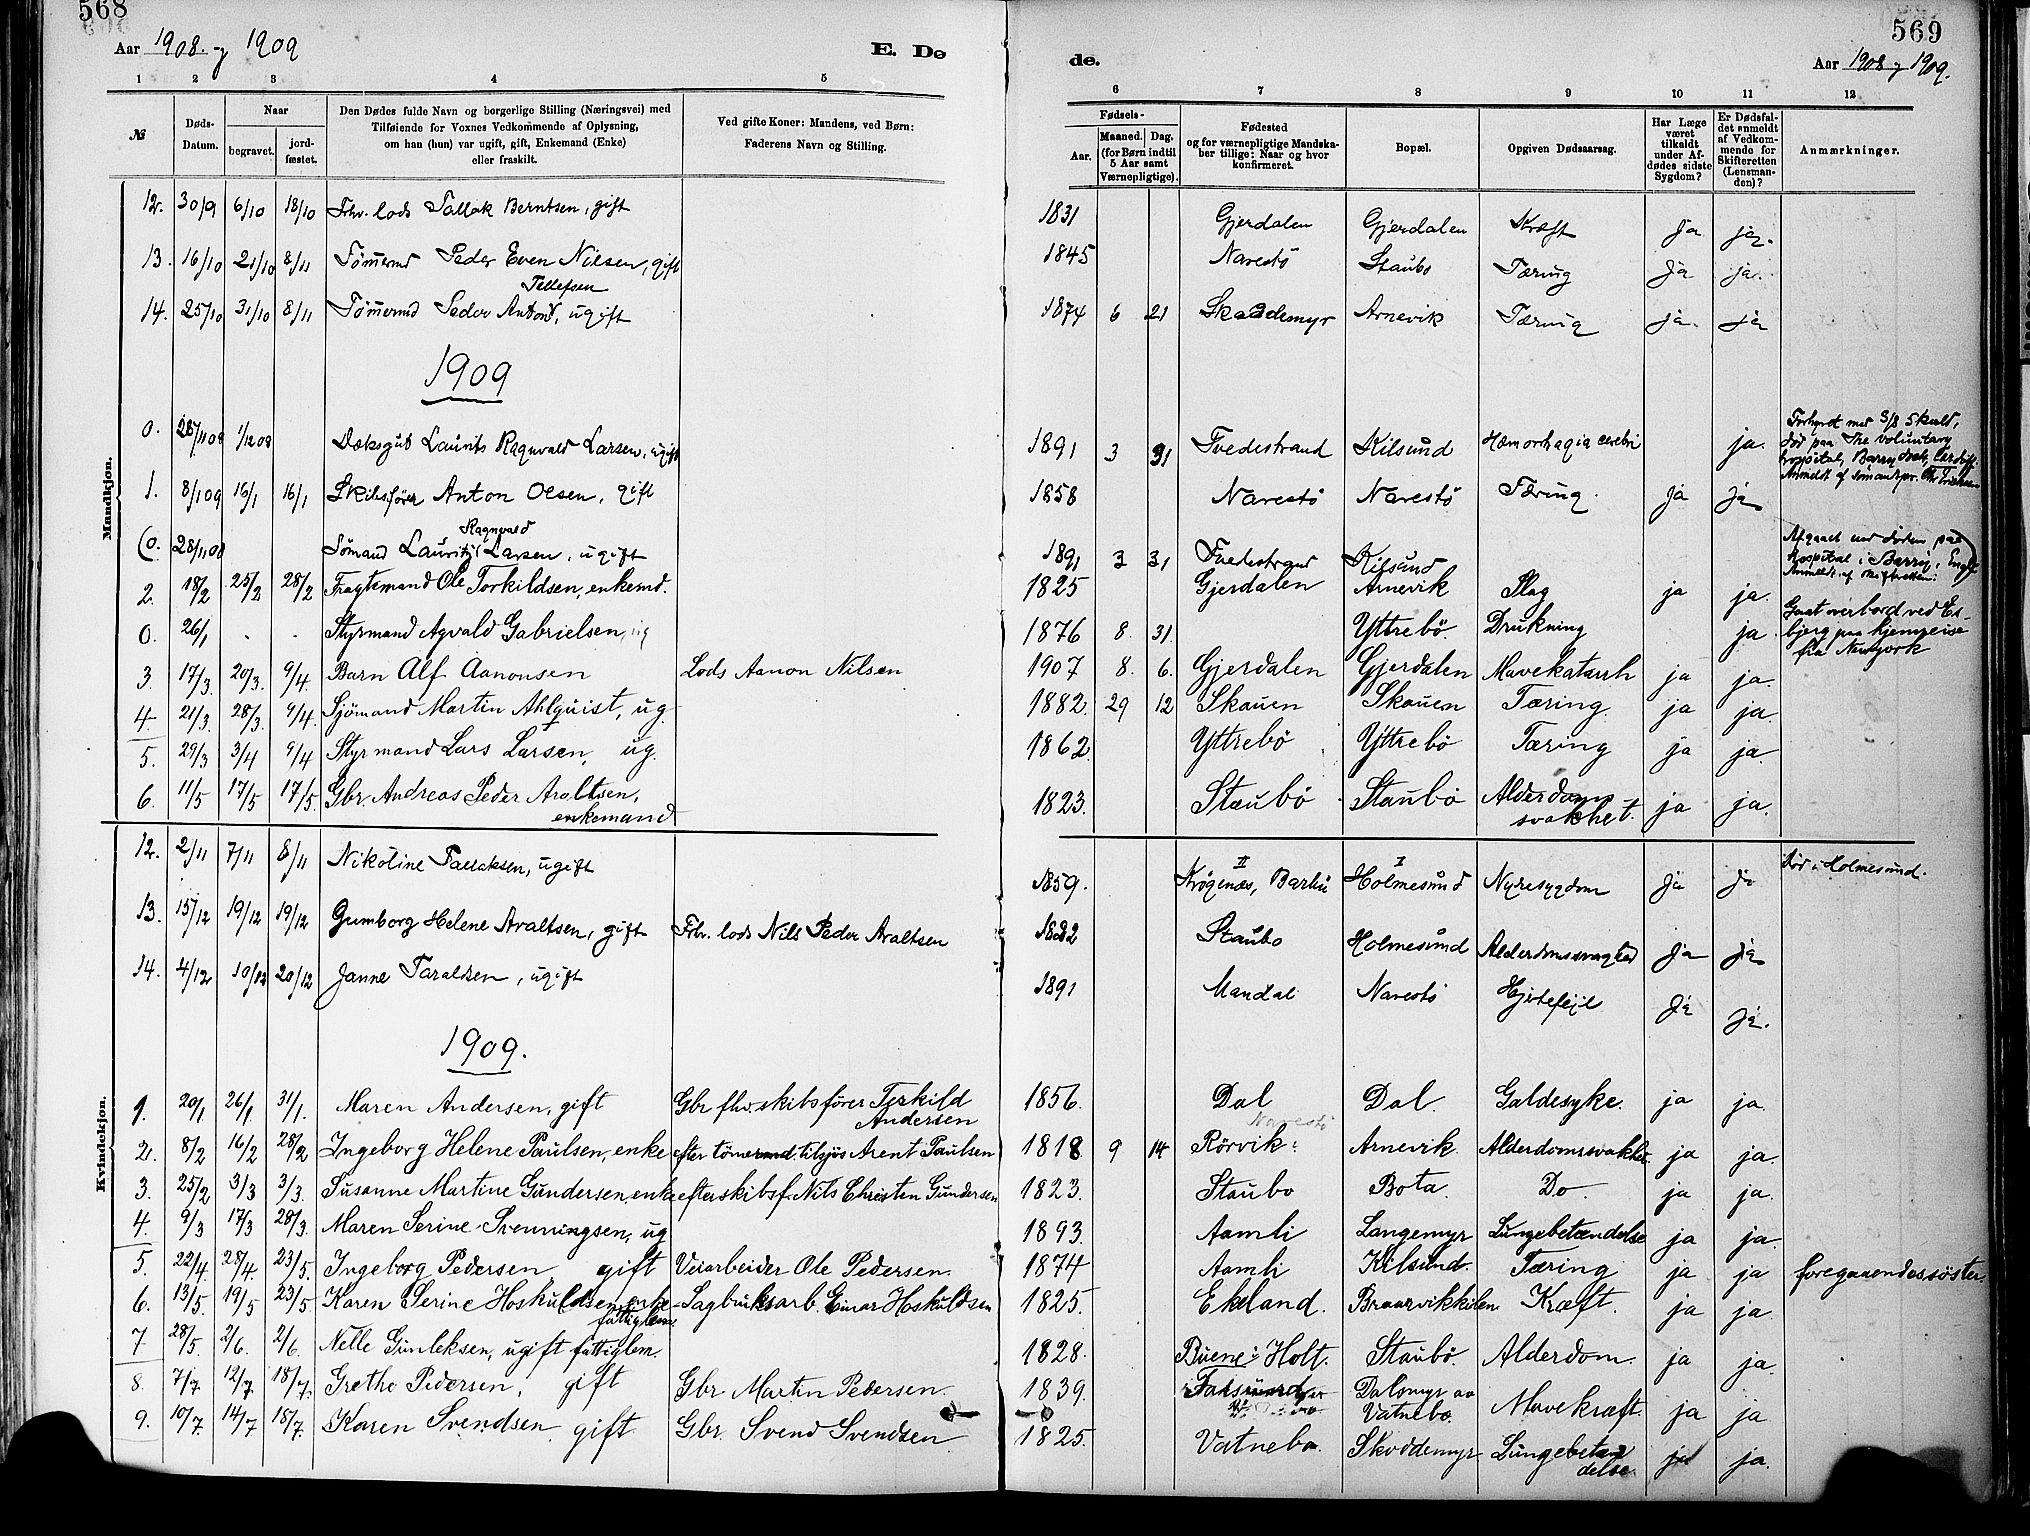 568
Aar 1908. og 1909
E. Dø
1 2 3 4 5
№
Døds-
Datum.
Naar
begravet.
jord-
fæstet.
Den Dødes fulde Navn og borgerlige Stilling (Næringsvei) med
Tilføiende for Voxnes Vedkommende af Oplysning,
om han (hun) var ugift, gift, Enkemand (Enke)
eller fraskilt.
Ved gifte Koner: Mandens, ved Børn:
Faderens Navn og Stilling.
Mandkjøn.
12. 30/9 6/10 18/10 Fhv. lods Tallak Berntsen, gift
13. 16/10 21/10 8/11 Tømmermd Peder Even Nilsen, gift
Tellefsen
14. 25/10 31/10 8/11 Tømmermd Peder Anton, ugift
1909
0. 28/11 08 1/12 08 Dæksgut Laurits Ragnvald Larsen, ugift
1. 8/1 09 16/1 16/1 Skibsfører Anton Olsen, gift
Ragnvald
(0. 28/11 08 Sømand Lauritz Larsen, ugift
2. 18/2 25/2 28/2 Fragtemand Ole Torkildsen, enkemd.
0. 26/1 - - Styrmand Agvald Gabrielsen, ug
3. 17/3. 20/3. 9/4. Barn Alf Aanonsen Lods Aanon Nilsen
4. 21/3. 28/3. 9/4. Sjømand Martin Ahlquist, ug.
5. 29/3 3/4 9/4 Styrmand Lars Larsen, ug.
6. 11/5 17/5 17/5. Gbr. Andreas Peder Araltsen,
enkemand
Kvindekjøn.
12. 2/11 7/11 8/11 Nikoline Taraldsen, ugift
13. 15/12 19/12 19/12 Gumborg Helene Araltsen, gift Fhv. lods Nils Peder Araltsen
14. 4/12 10/12 20/12 Janne Taraldsen, ugift
1909.
1. 20/1 26/1 31/1. Maren Andersen, gift Gbr fhv. skibsfører Terkild
Andersen
2. 8/2 16/2 28/2 Ingeborg Helene Paulsen, enke efter tømermd. tilsjøs Arent Paulsen
3. 25/2 3/3 3/3. Susanne Martine Gundersen, enke efter skibsf. Nils Christen Gundersen
4. 9/3 17/3 28/3. Maren Serine Svenningsen, ug
5. 22/4. 28/4. 23/5. Ingeborg Pedersen gift Veiarbeider Ole Pedersen.
6. 13/5. 19/5 23/5 Karen Serine Hoskuldsen enke - Sagbruksarb. Einar Hoskuldsen
fattiglem
7. 28/5. 2/6. 2/6. Nelle Gunleksen, ugift fattiglem.
8. 7/7 12/7 18/7. Grethe Pedersen, gift Gbr Martin Pedersen.
9. 10/7. 14/7 18/7. Karen Svendsen gift Gbr. Svend Svendsen
569
de.
Aar 1908 og 1909.
6 7 8 9 10 11 12
Fødsels-
Aar.
Maaned. Dag.
(for Børn indtil
5 Aar samt
Værnepligtige).
Fødested
og for værnepligtige Mandska-
ber tillige: Naar og hvor
konfirmeret.
Bopæl.
Opgiven Dødsaarsag.
Har Læge
været
tilkaldt
under Af-
dødes sidste
Sygdom?
Er Dødsfal-
det anmeldt
af Vedkom-
mende for
Skifteretten
(Lensman-
den)?
Anmærkninger.
1831 Gjerdalen Gjerdalen Kræft Ja ja.
1845 Narestö Staubö Tæring Ja ja.
1874 6 21 Skaddemyr Arnevik Tæring ja. ja
1891 3 31 Tvedestrand Kilsund Hæmorrhagia cerebri ja.
Forhyret med S/S Skuld,
død paa The voluntary
hospital, Barry dock, Cardiff.
Anmeldt af sømandspr.
1858 Narestö Narestö Tæring. ja ja
1891 3 31 Tvedestrand Kilsund
Afgaaet ved døden paa
hospital i Barry, Engl.
Anmeldt af skifteretten.
1825 Gjerdalen Arnevik Slag ja ja.
1876 8. 31. Yttrebö. Drukning ja.
Gaat overbord ved Es-
bjerg paa hjemreise
fra Newyork
1907 8. 6. Gjerdalen Gjerdalen Mavekatarrh ja ja.
1882. 29 12 Skauen Skauen Tæring. ja ja.
1862. Yttrebö Yttrebö Tæring ja ja.
1823. Staubö Staubö Alderdoms
svakhet. ja ja.
II I
1859. Krögenæs, Barbu Holmesund Nyresygdom Ja Ja Död i Holmesund.
1832 Staubo Holmesund Alderdomssvaghed Ja ja
1891 Mandal Narestö Hjertefeil Ja Ja.
1856. Dal Dal. Galdesyke. ja ja.
Narestö
1818 9 14 Rörvik: Arnevik. Alderdomssvakhet ja ja.
1823. Staubo Bota. Do. ja ja.
1893. Aamli Langemyr Lungebetændelse ja ja.
1874 Aamli Kilsund. Tæring ja ja foregaaendes söster
1825. Ekeland. Braarvikkilen Kræft. ja ja.
1828. Buene i Holt. Staubö. Alderdom. ja ja.
1839. Dalsmyr av
Vatnebo. Mavekræft. ja ja
1825. Vatnebo. Skoddemyr Lungebetæn
delse. ja ja.